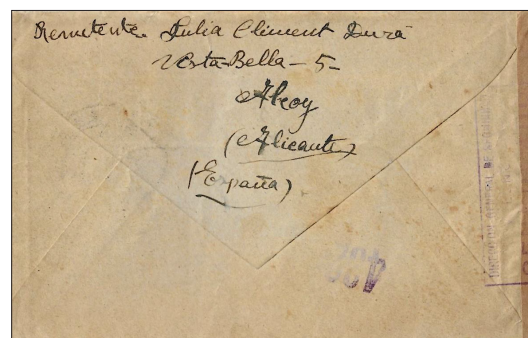 Remitente. Julia Climent Durá
Vista-Bella - 5 -
Alcoy
(Alicante)
(España)